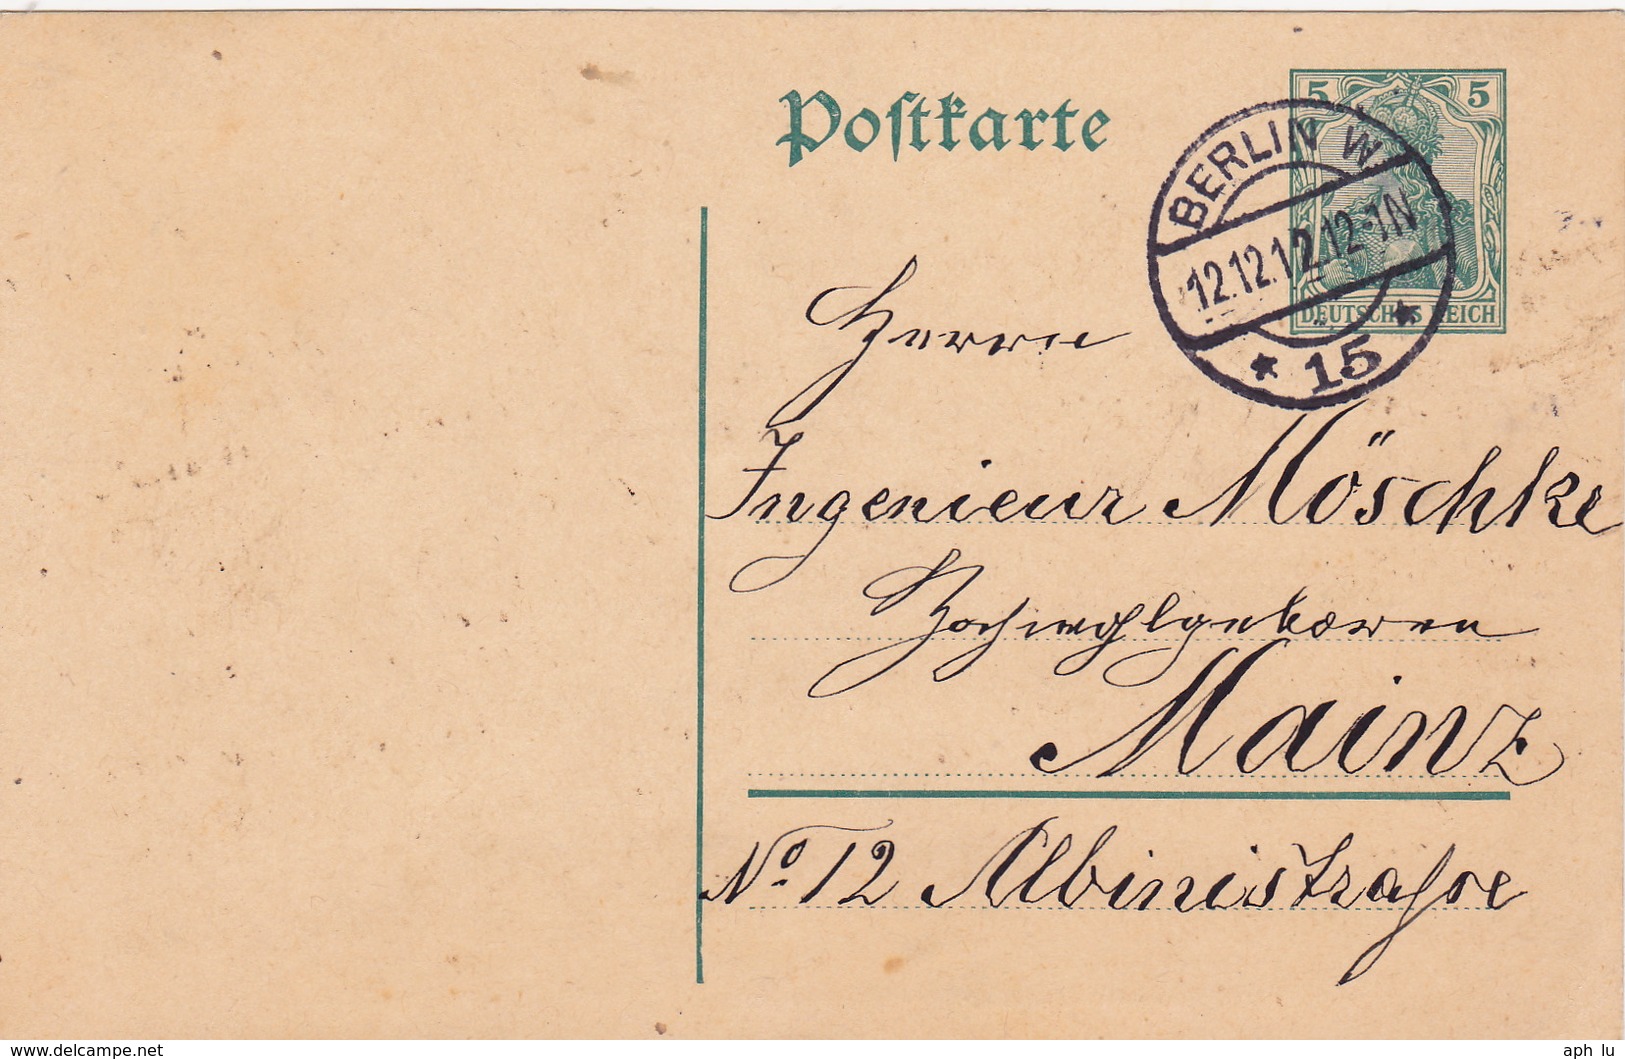 Postkarte
5 5
DEUTSCHES REICH
BERLIN W
12.12.12.12-1N
* 15 *
Herrn
Ingenieur Möschke
Hochwohlgeboren
Mainz
No. 12 Albinistraße
www.delcampe.net
aph lu